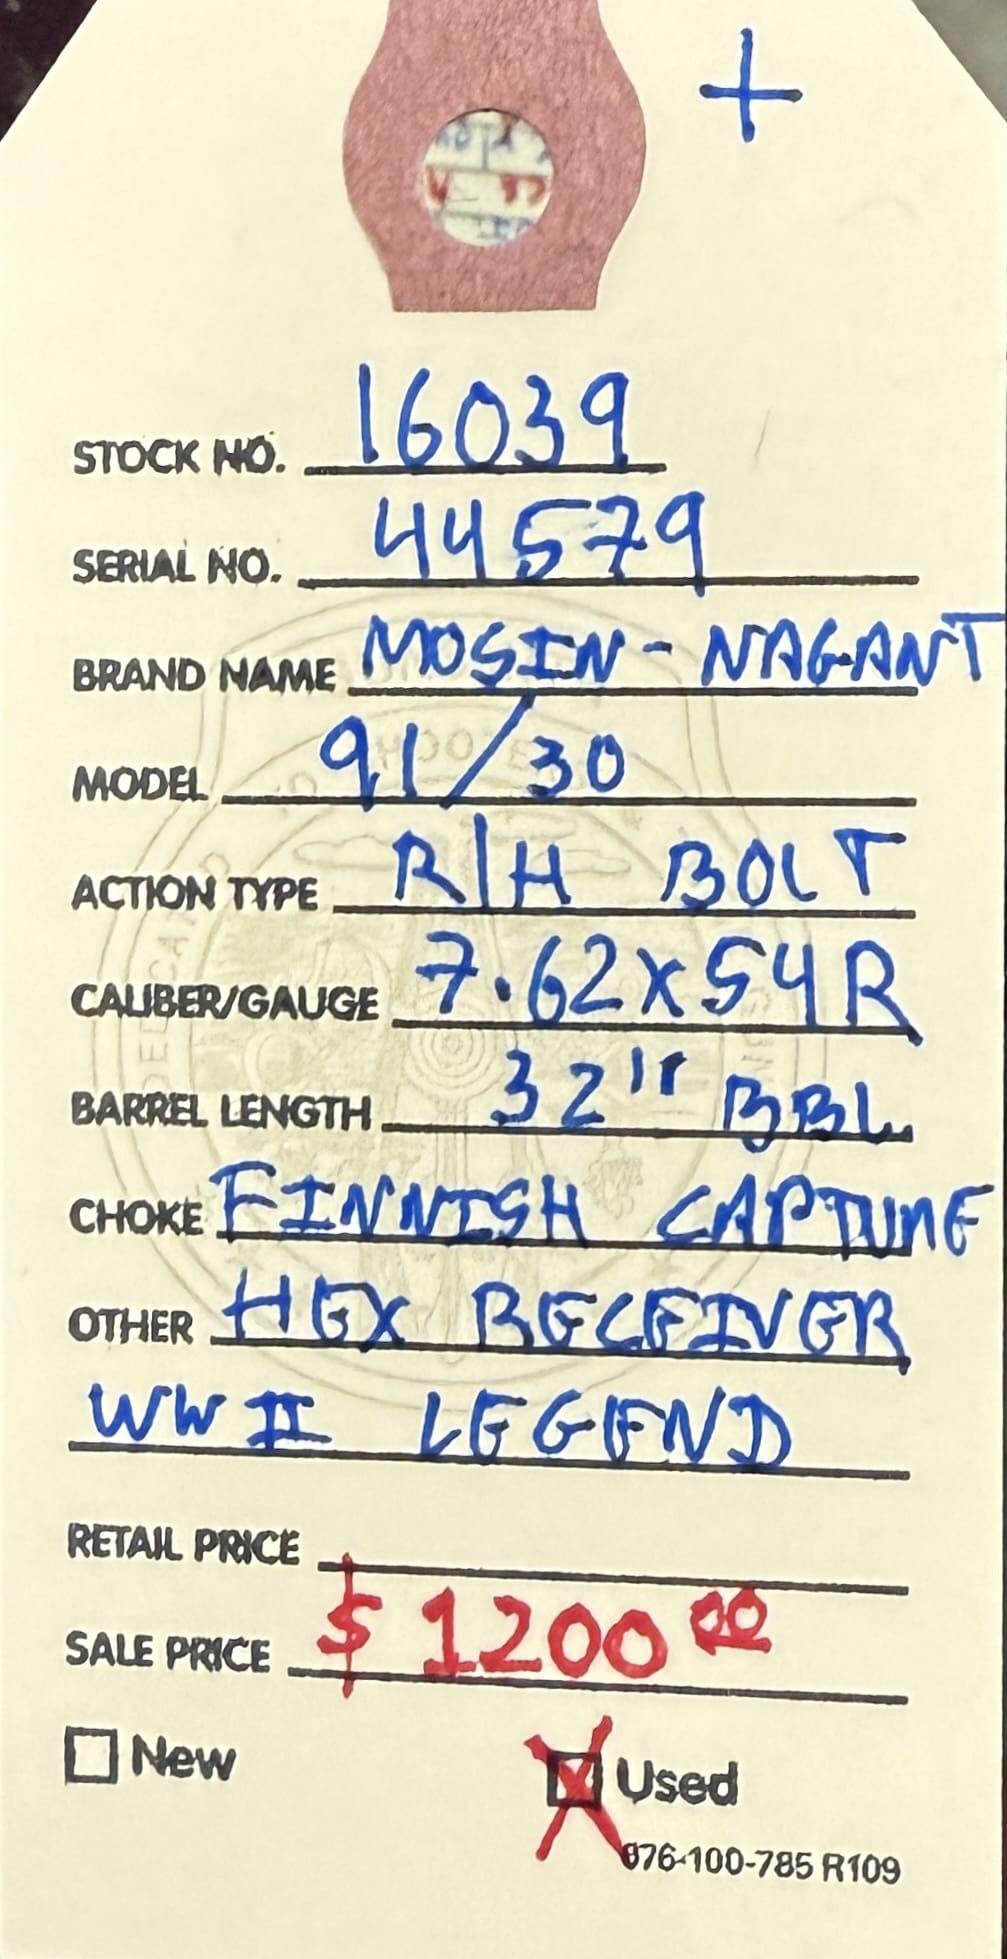 +
STOCK NO. 16039
SERIAL NO. 44579
BRAND NAME MOSIN - NAGANT
MODEL 91/30
ACTION TYPE R/H BOLT
CALIBER/GAUGE 7.62x54R
BARREL LENGTH 32" BBL
CHOKE FINNISH CAPTURE
OTHER HEX RECEIVER
WW II LEGEND
RETAIL PRICE
SALE PRICE $1200 00
New
Used
076-100-785 R109